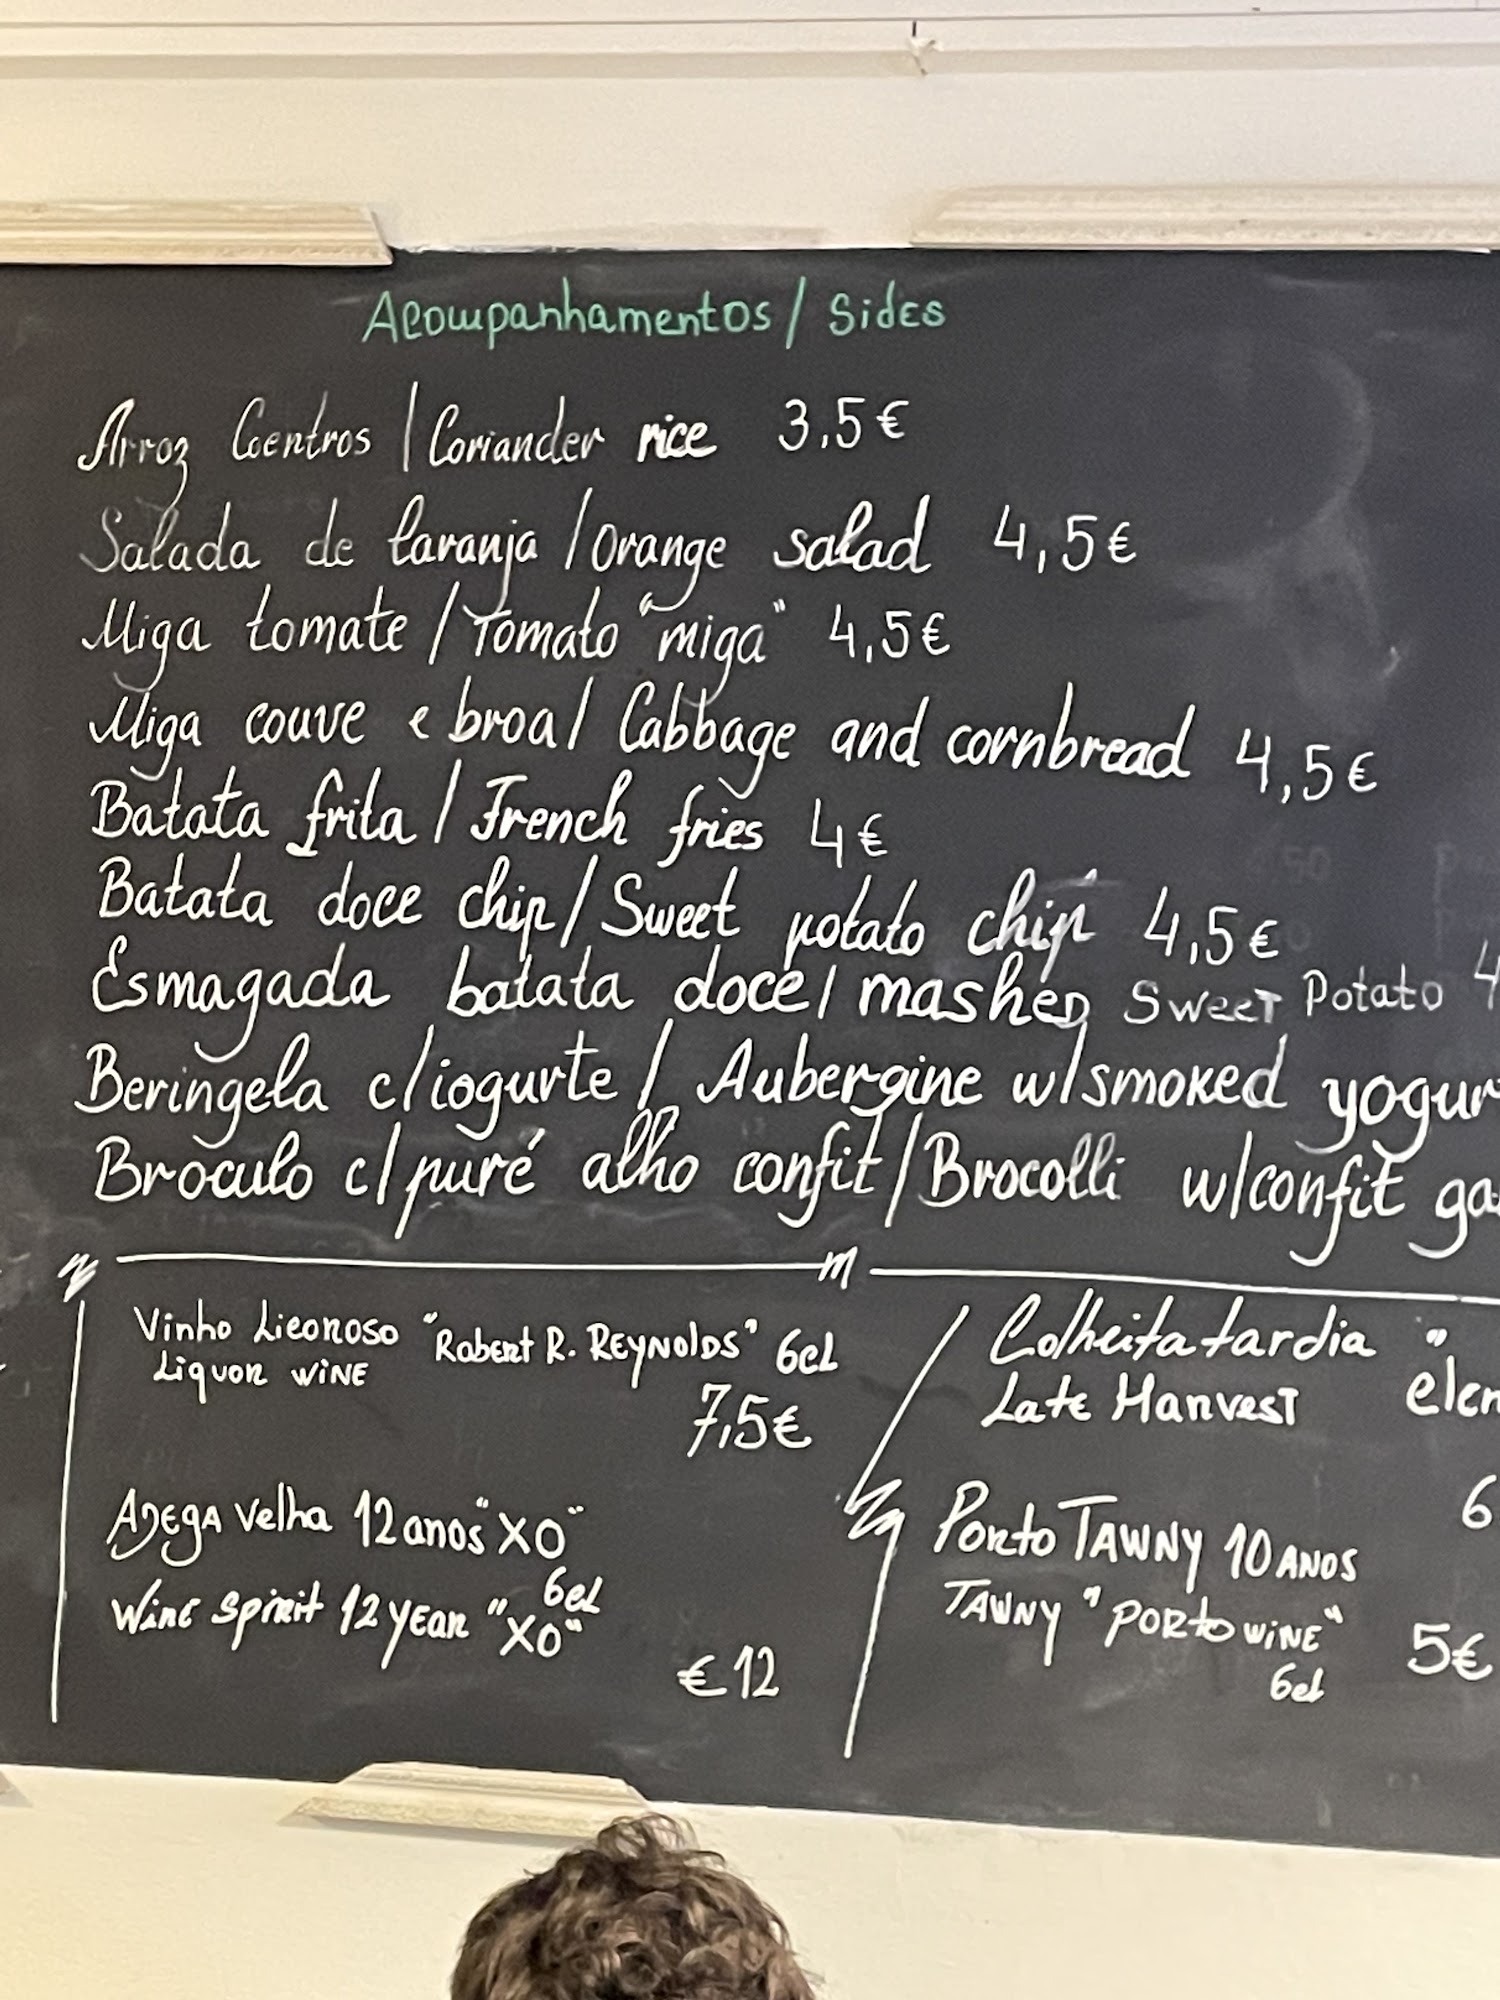 Acompanhamentos / Sides
Arroz Coentros / Coriander rice 3,5€
Salada de laranja / Orange salad 4,5€
Miga tomate / Tomato "miga" 4,5€
Miga couve e broa / Cabbage and cornbread 4,5€
Batata frita / French fries 4€
Batata doce chip / Sweet potato chip 4,5€
Esmagada batata doce / mashed Sweet Potato 4
Beringela c/iogurte / Aubergine w/smoked yogur
Bróculo c/puré alho confit / Brocolli w/confit ga
Vinho Licoroso "Robert R. Reynolds" 6cl
Liquor wine
7,5€
Adega Velha 12 anos "XO"
6cl
Wine spirit 12 year "XO"
€12
Colheita tardia "
Late Harvest elen
6
Porto Tawny 10 anos
Tawny "Porto wine" 5€
6cl